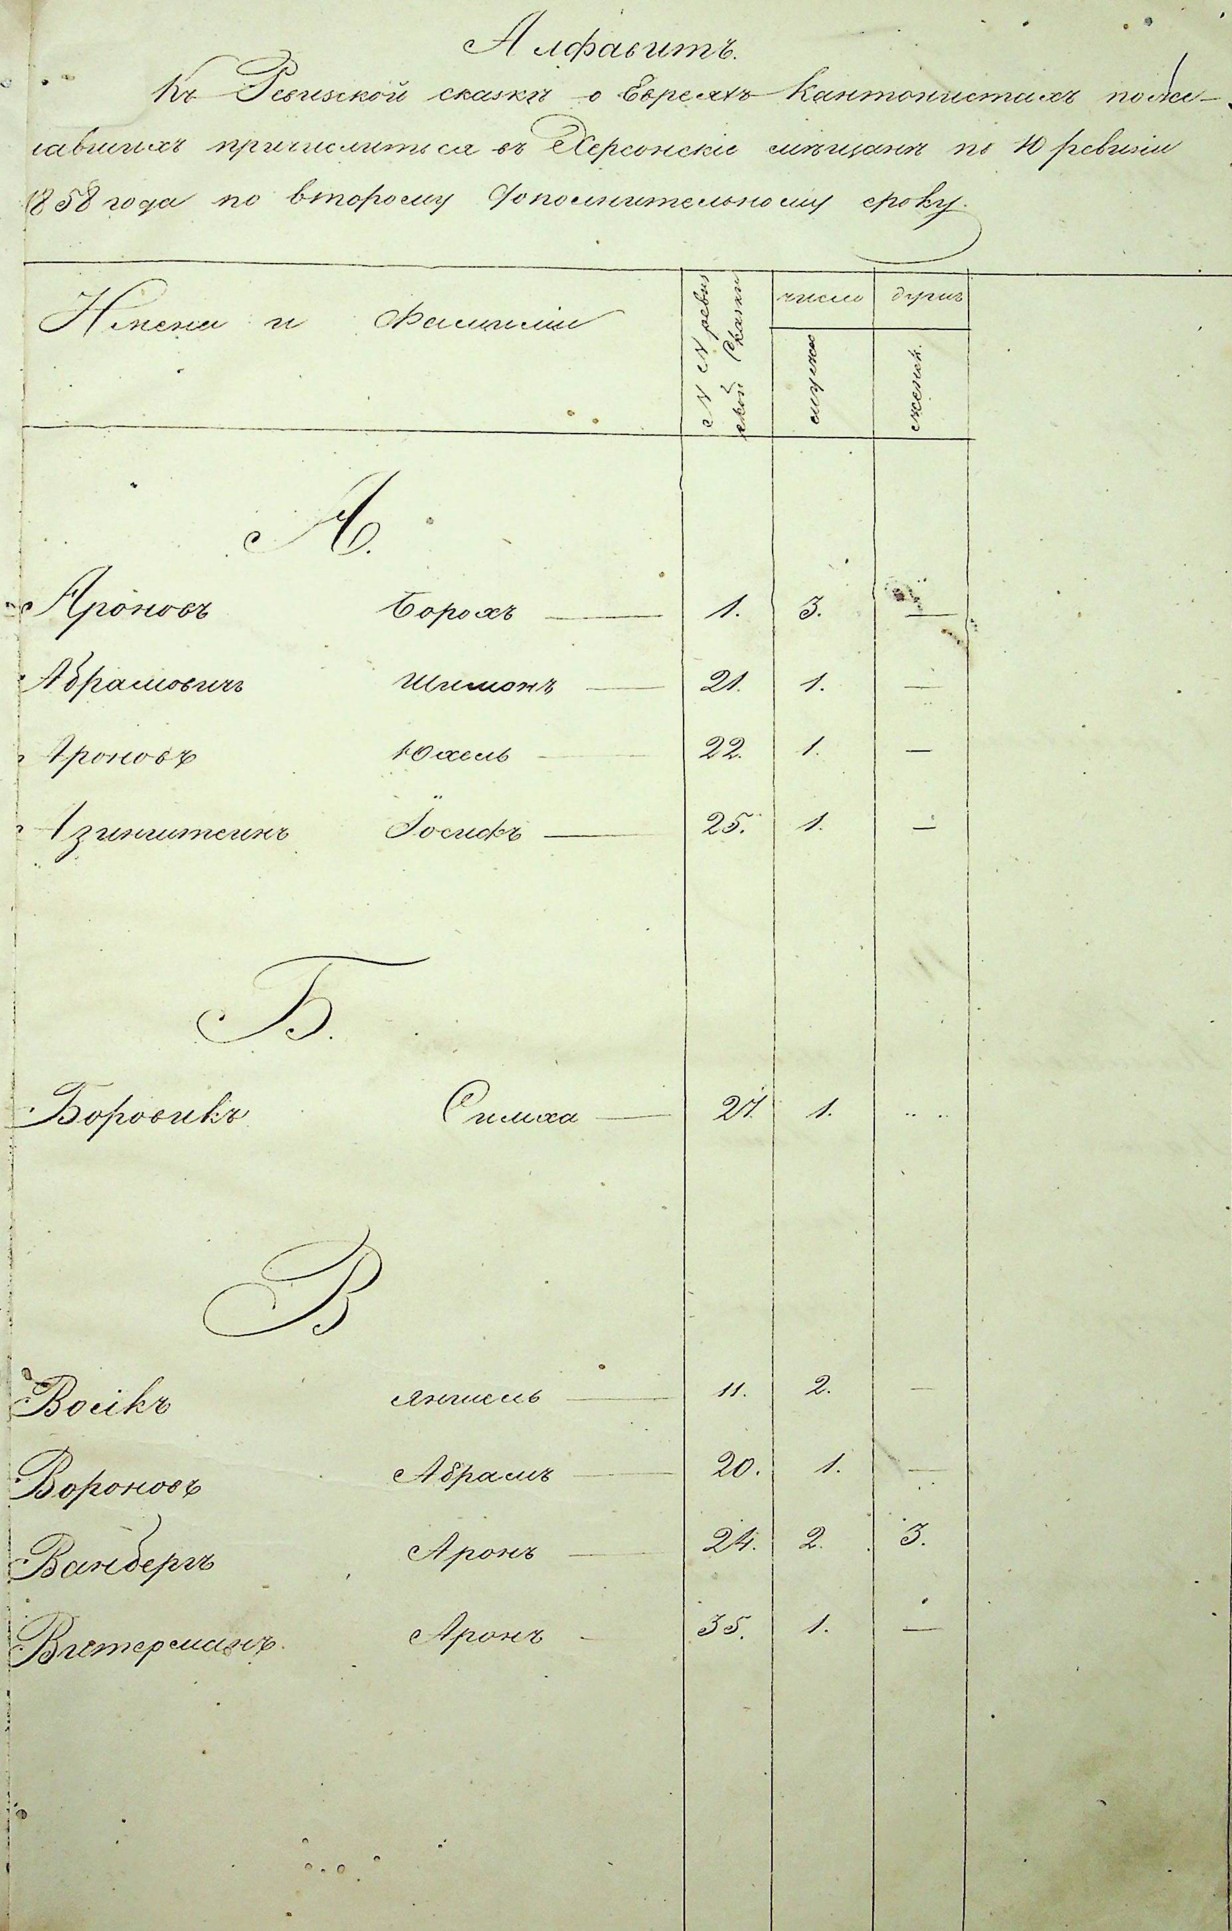 Алфавитъ.
Къ Ревизской сказкѣ о Евреяхъ Кантонистахъ поже-
лавшихъ причислиться въ Херсонскіе мѣщане по 10 ревизіи
1858 года по второму дополнительному сроку.
Имена и Фамиліи
№ № ревиз
ской Сказки
число душъ
мужск
женск.
А.
Ароновъ Борохъ — 1. 3. —
Абрамовичъ Шимонъ — 21. 1. —
Ароновъ Юхель — 22. 1. —
Азинштеинъ Іосифъ — 25. 1. —
Б.
Боровикъ Симха — 27. 1. ..
В
Воликъ Янкель — 11. 2. —
Вороновъ Абрамъ — 20. 1. —
Ванбергъ Аронъ — 24. 2. 3.
Витерманъ. Аронъ - 35. 1. —